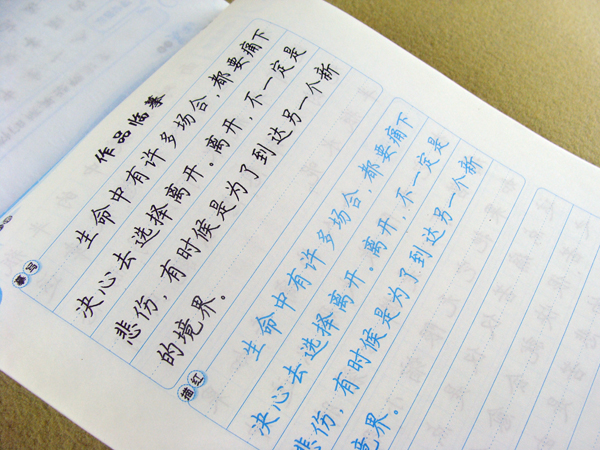 作品临摹
生命中有许多场合，都要痛下
决心去选择离开。离开，不一定是
悲伤，有时候是为了到达另一个新
的境界。
摹写
生命中有许多场合，都要痛下
决心去选择离开。离开，不一定是
悲伤，有时候是为了到达另一个新
的境界。
描红